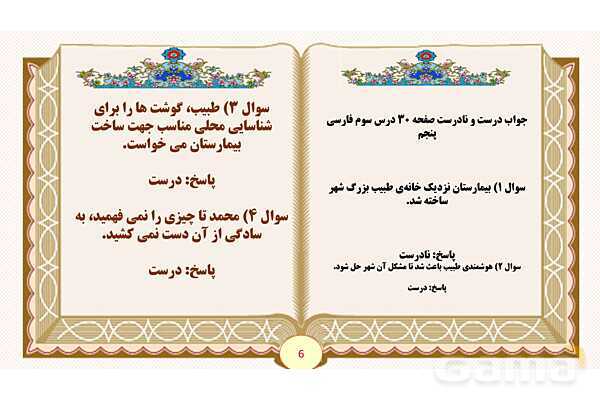 جواب درست و نادرست صفحه ۳۰ درس سوم فارسی
پنجم
سوال ۱) بیمارستان نزدیک خانه‌ی طبیب بزرگ شهر
ساخته شد.
پاسخ: نادرست
سوال ۲) هوشمندی طبیب باعث شد تا مشکل آن شهر حل شود.
پاسخ: درست
سوال ۳) طبیب، گوشت ها را برای
شناسایی محلی مناسب جهت ساخت
بیمارستان می خواست.
پاسخ: درست
سوال ۴) محمد تا چیزی را نمی فهمید، به
سادگی از آن دست نمی کشید.
پاسخ: درست
6
Gama